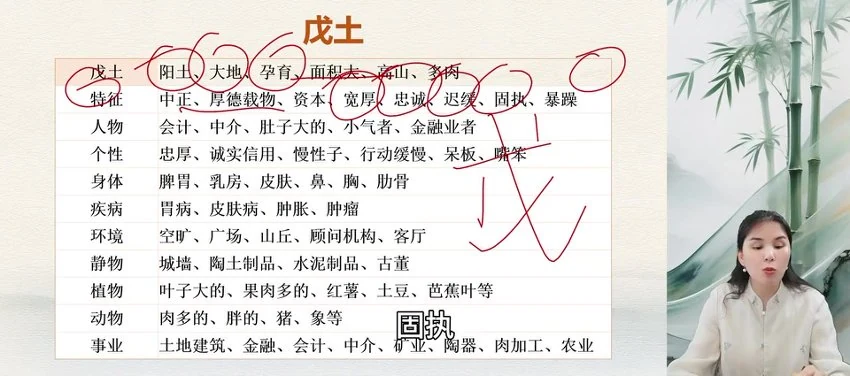 戊土
戊土 阳土、大地、孕育、面积大、高山、多肉
特征 中正、厚德载物、资本、宽厚、忠诚、迟缓、固执、暴躁
人物 会计、中介、肚子大的、小气者、金融业者
个性 忠厚、诚实信用、慢性子、行动缓慢、呆板、嘴笨
身体 脾胃、乳房、皮肤、鼻、胸、肋骨
疾病 胃病、皮肤病、肿胀、肿瘤
环境 空旷、广场、山丘、顾问机构、客厅
静物 城墙、陶土制品、水泥制品、古董
植物 叶子大的、果肉多的、红薯、土豆、芭蕉叶等
动物 肉多的、胖的、猪、象等
固执
事业 土地建筑、金融、会计、中介、矿业、陶器、肉加工、农业